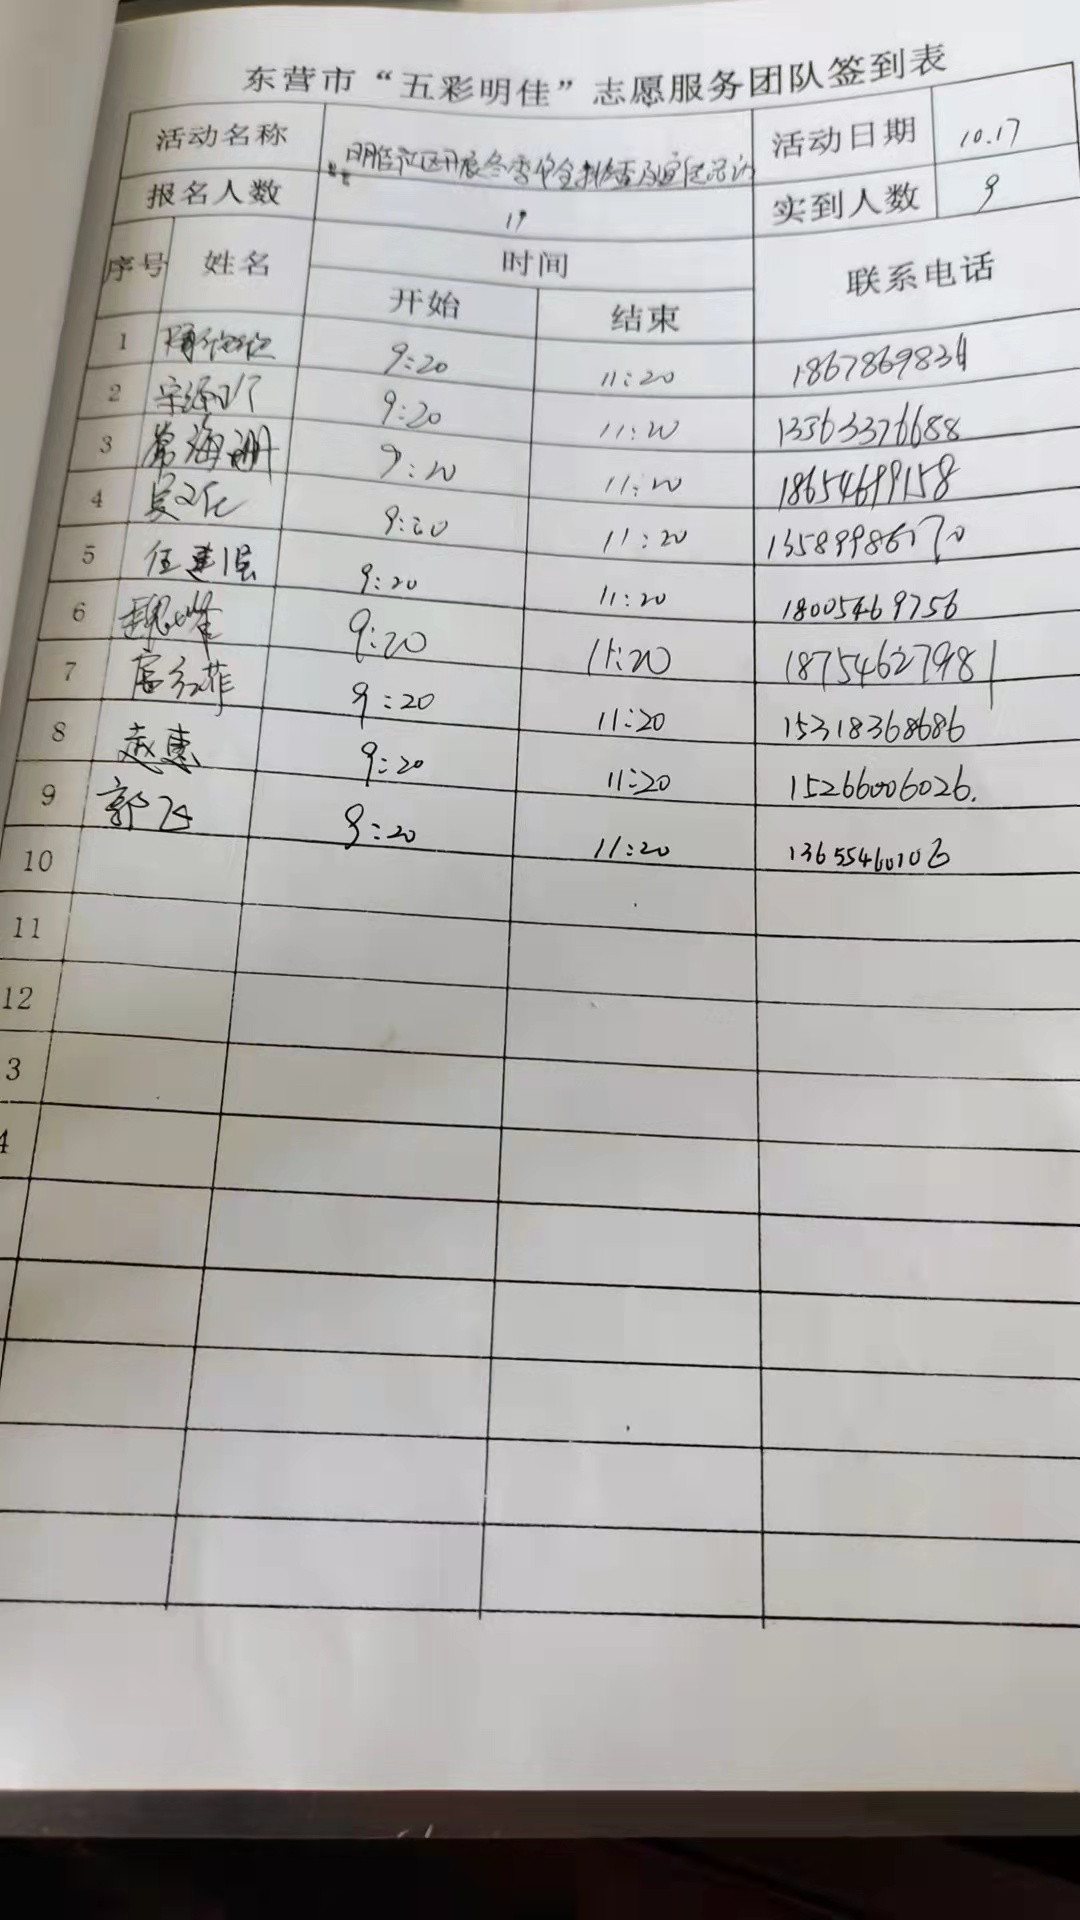 东营市“五彩明佳”志愿服务团队签到表
活动名称 明佳社区开展冬季安全排查及宣传活动 活动日期 10.17
报名人数 实到人数 9
序号 姓名 时间 联系电话
开始 结束
1 9:20 11:20
2 9:20 11:20 13363376688
3 常海珊 9:20 11:20 18654699158
4 吴文化 9:20 11:20
5 任建民 9:20 11:20 18005469756
6 魏峰 9:20 11:20 18754627981
7 9:20 11:20 15318368686
8 赵惠 9:20 11:20 15266006026.
9 郭飞 9:20 11:20 13655460106
10
11
12
3
4